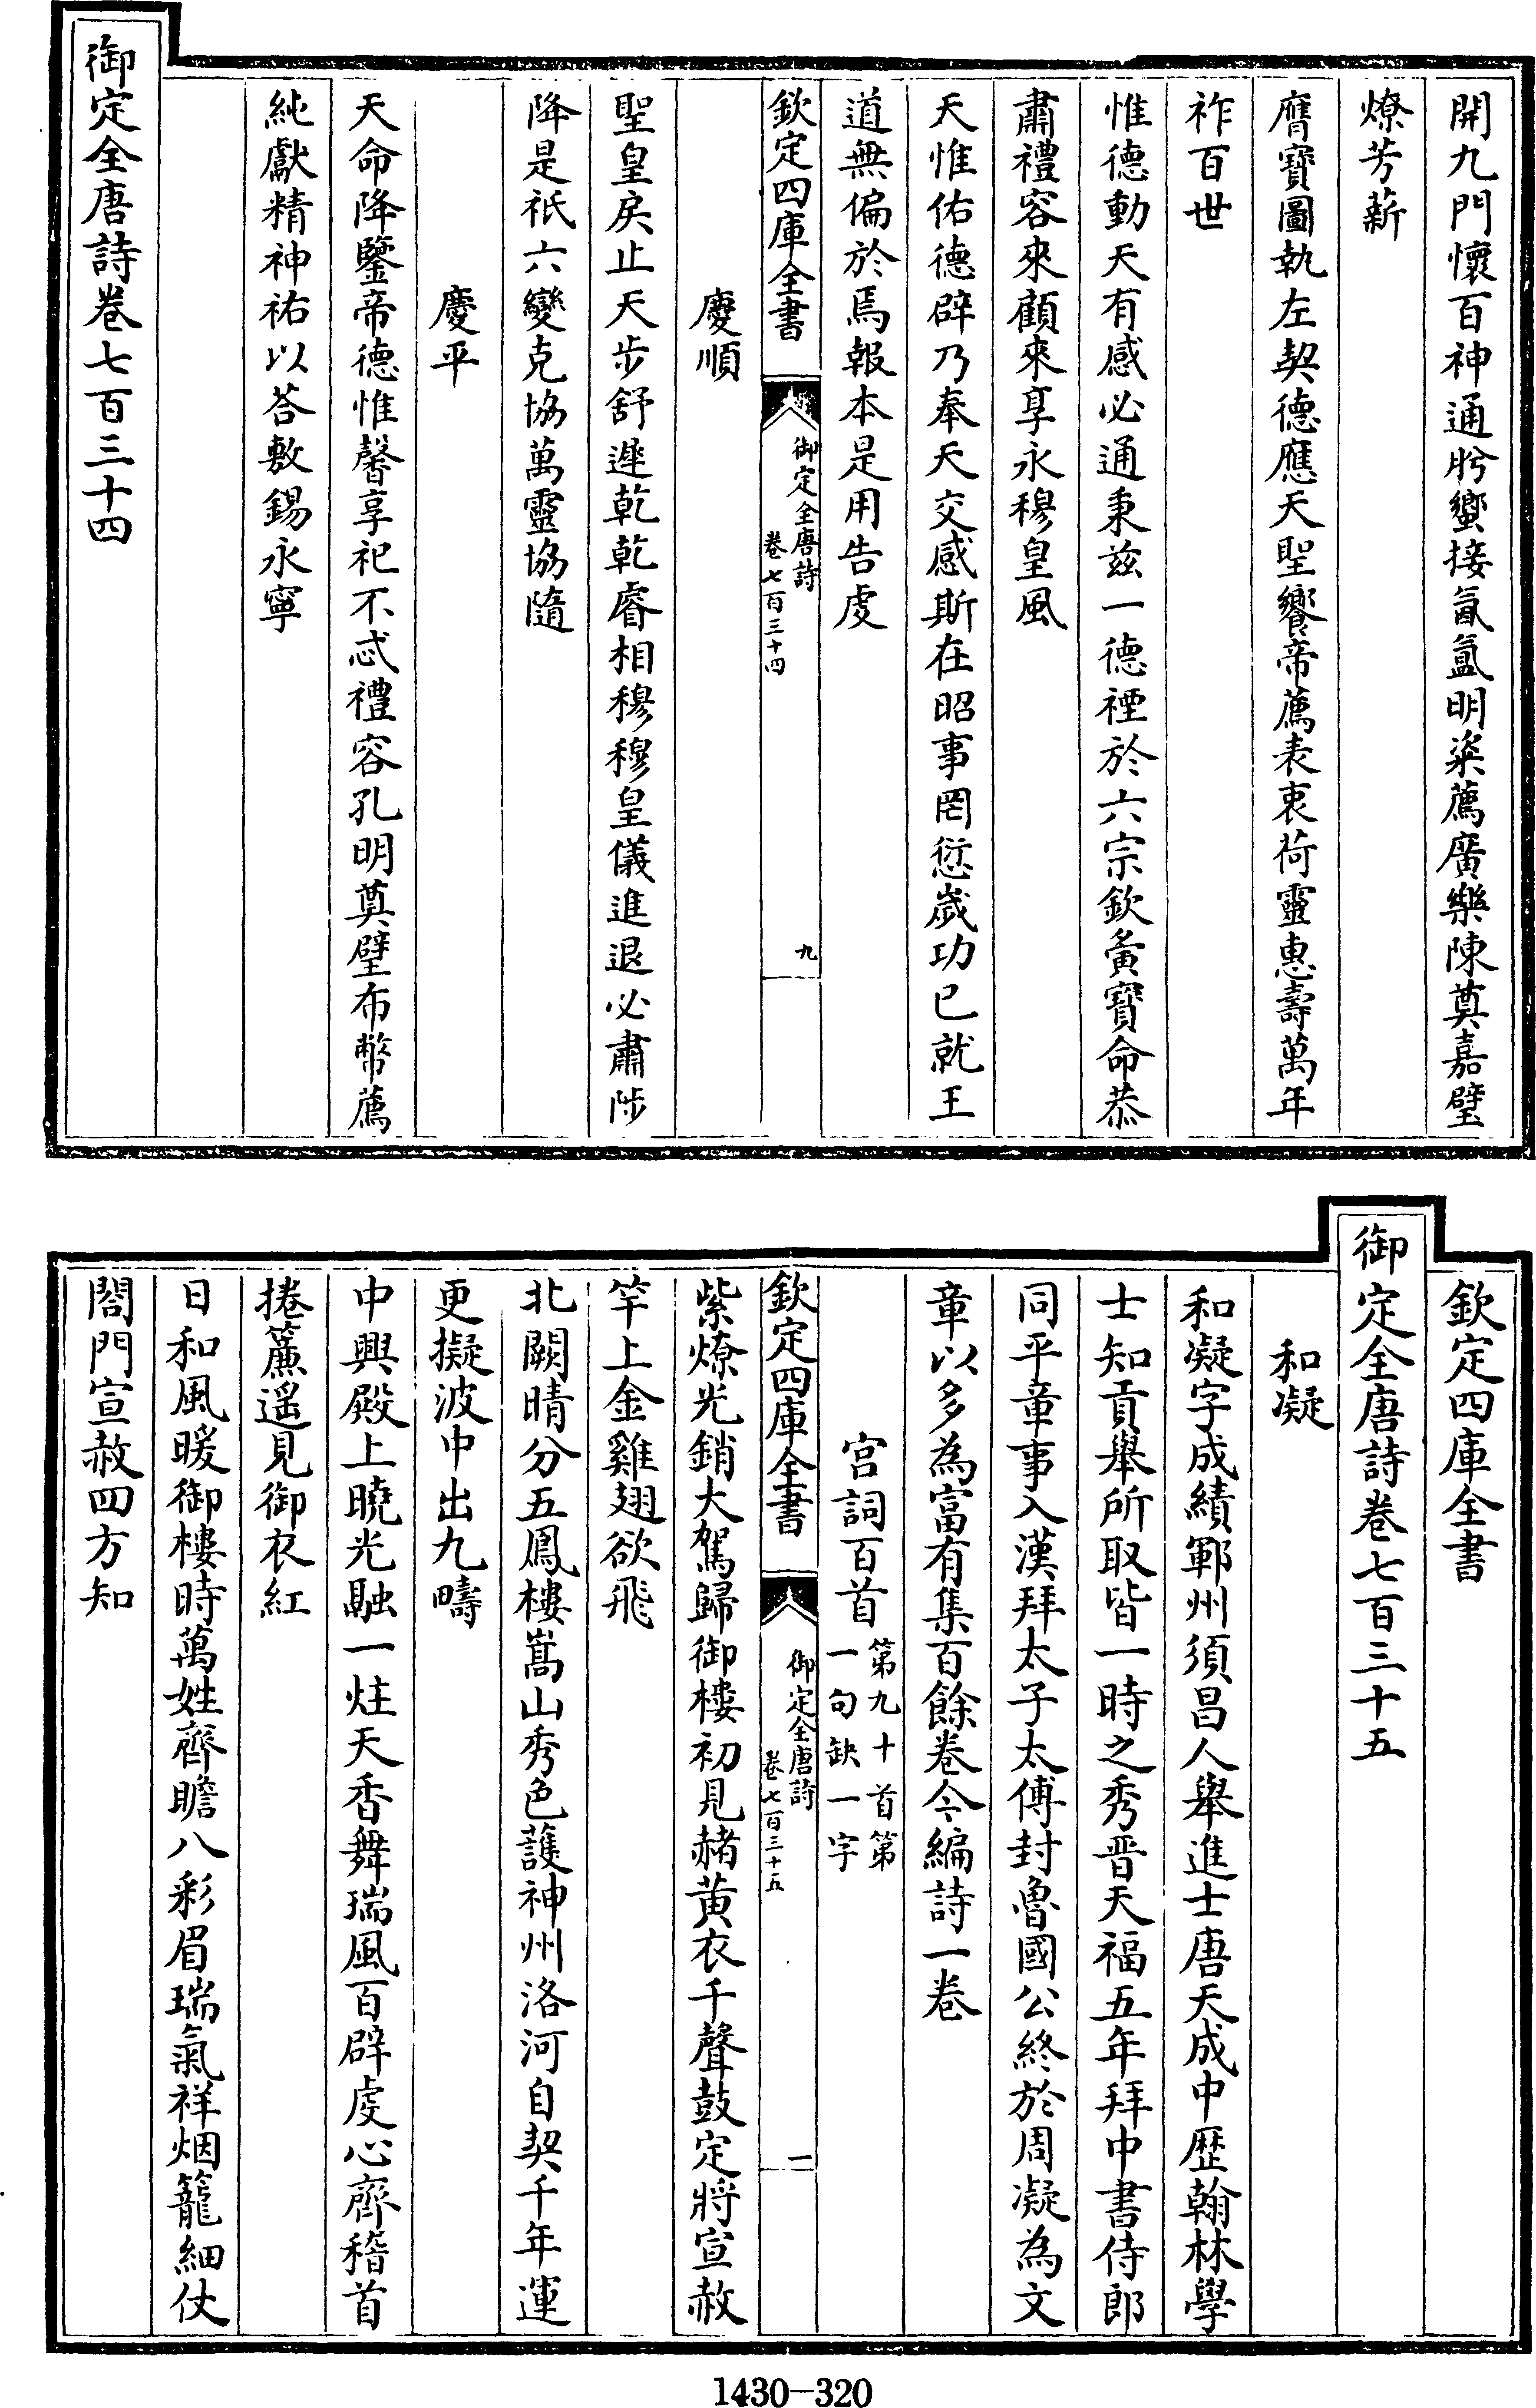 開九門懷百神通肸蠁接氤氳明粢薦廣樂陳奠嘉璧
燎芳薪
膺寶圖執左契德應天聖饗帝薦表衷荷靈惠壽萬年
祚百世
惟德動天有感必通秉兹一德禋於六宗欽黃寶命恭
肅禮容來顧來享永穆皇風
天惟佑德辟乃奉天交感斯在昭事罔愆歲功已就王
道無偏於焉報本是用告虔
欽定四庫全書
御定全唐詩
卷七百三十四
九
慶順
聖皇戾止天步舒遲乾乾睿相穆穆皇儀進退必肅陟
降是祇六變克協萬靈協隨
慶平
天命降鑒帝德惟馨享祀不忒禮容孔明奠璧布幣薦
純獻精神祐以荅敷錫永寧
御定全唐詩卷七百三十四
欽定四庫全書
御定全唐詩卷七百三十五
和凝
和凝字成績鄆州須昌人舉進士唐天成中歷翰林學
士知貢舉所取皆一時之秀晋天福五年拜中書侍郎
同平章事入漢拜太子太傅封魯國公終於周凝為文
章以多為富有集百餘卷今編詩一卷
宮詞百首
第九十首第
一句缺一字
欽定四庫全書
御定全唐詩
卷七百三十五
一
紫燎光銷大駕歸御樓初見赭黃衣千聲鼓定將宣赦
竿上金雞翅欲飛
北闕晴分五鳳樓嵩山秀色護神州洛河自契千年運
更擬波中出九疇
中興殿上曉光融一炷天香舞瑞風百辟虔心齊稽首
捲簾遥見御衣紅
日和風暖御樓時萬姓齊瞻八彩眉瑞氣祥烟籠細仗
閤門宣赦四方知
1430-320